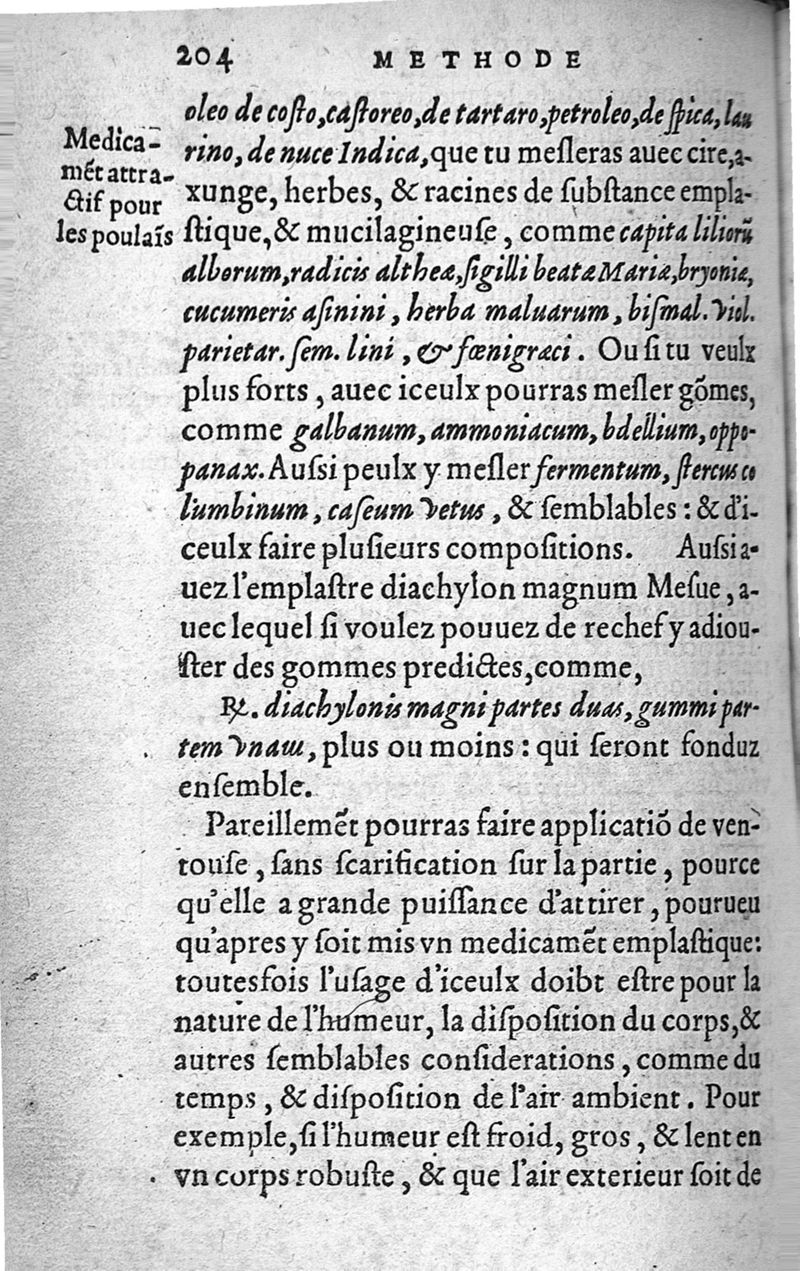 204 METHODE
Medica-
mẽt attra-
ctif pour
les poulaĩs
oleo de costo,castoreo,de tartaro,petroleo,de spica, lau
rino, de nuce Indica,que tu mesleras auec cire,a-
xunge, herbes, & racines de substance empla-
stique,& mucilagineuse, comme capita liliorũ
alborum,radicis altheæ,sigilli beatæ Mariæ,bryoniæ,
cucumeris asinini, herba maluarum, bismal. Viol.
parietar. sem. lini, & fœnigræci. Ou si tu veulx
plus forts, auec iceulx pourras mesler gõmes,
comme galbanum, ammoniacum, bdellium, oppo-
panax. Aussi peulx y mesler fermentum, stercus co
lumbinum, caseum Vetus, & semblables : & d'i-
ceulx faire plusieurs compositions. Aussi a-
uez l'emplastre diachylon magnum Mesue, a-
uec lequel si voulez pouuez de rechef y adiou-
ster des gommes predictes,comme,
℞. diachylonis magni partes duas, gummi par-
tem Vnam, plus ou moins : qui seront fonduz
ensemble.
Pareillemẽt pourras faire applicatiõ de ven-
touse, sans scarification sur la partie, pource
qu'elle a grande puissance d'attirer, pourueu
qu'apres y soit mis vn medicamẽt emplastique:
toutesfois l'usage d'iceulx doibt estre pour la
nature de l'humeur, la disposition du corps,&
autres semblables considerations, comme du
temps, & disposition de l'air ambient. Pour
exemple,si l'humeur est froid, gros, & lent en
vn corps robuste, & que l'air exterieur soit de